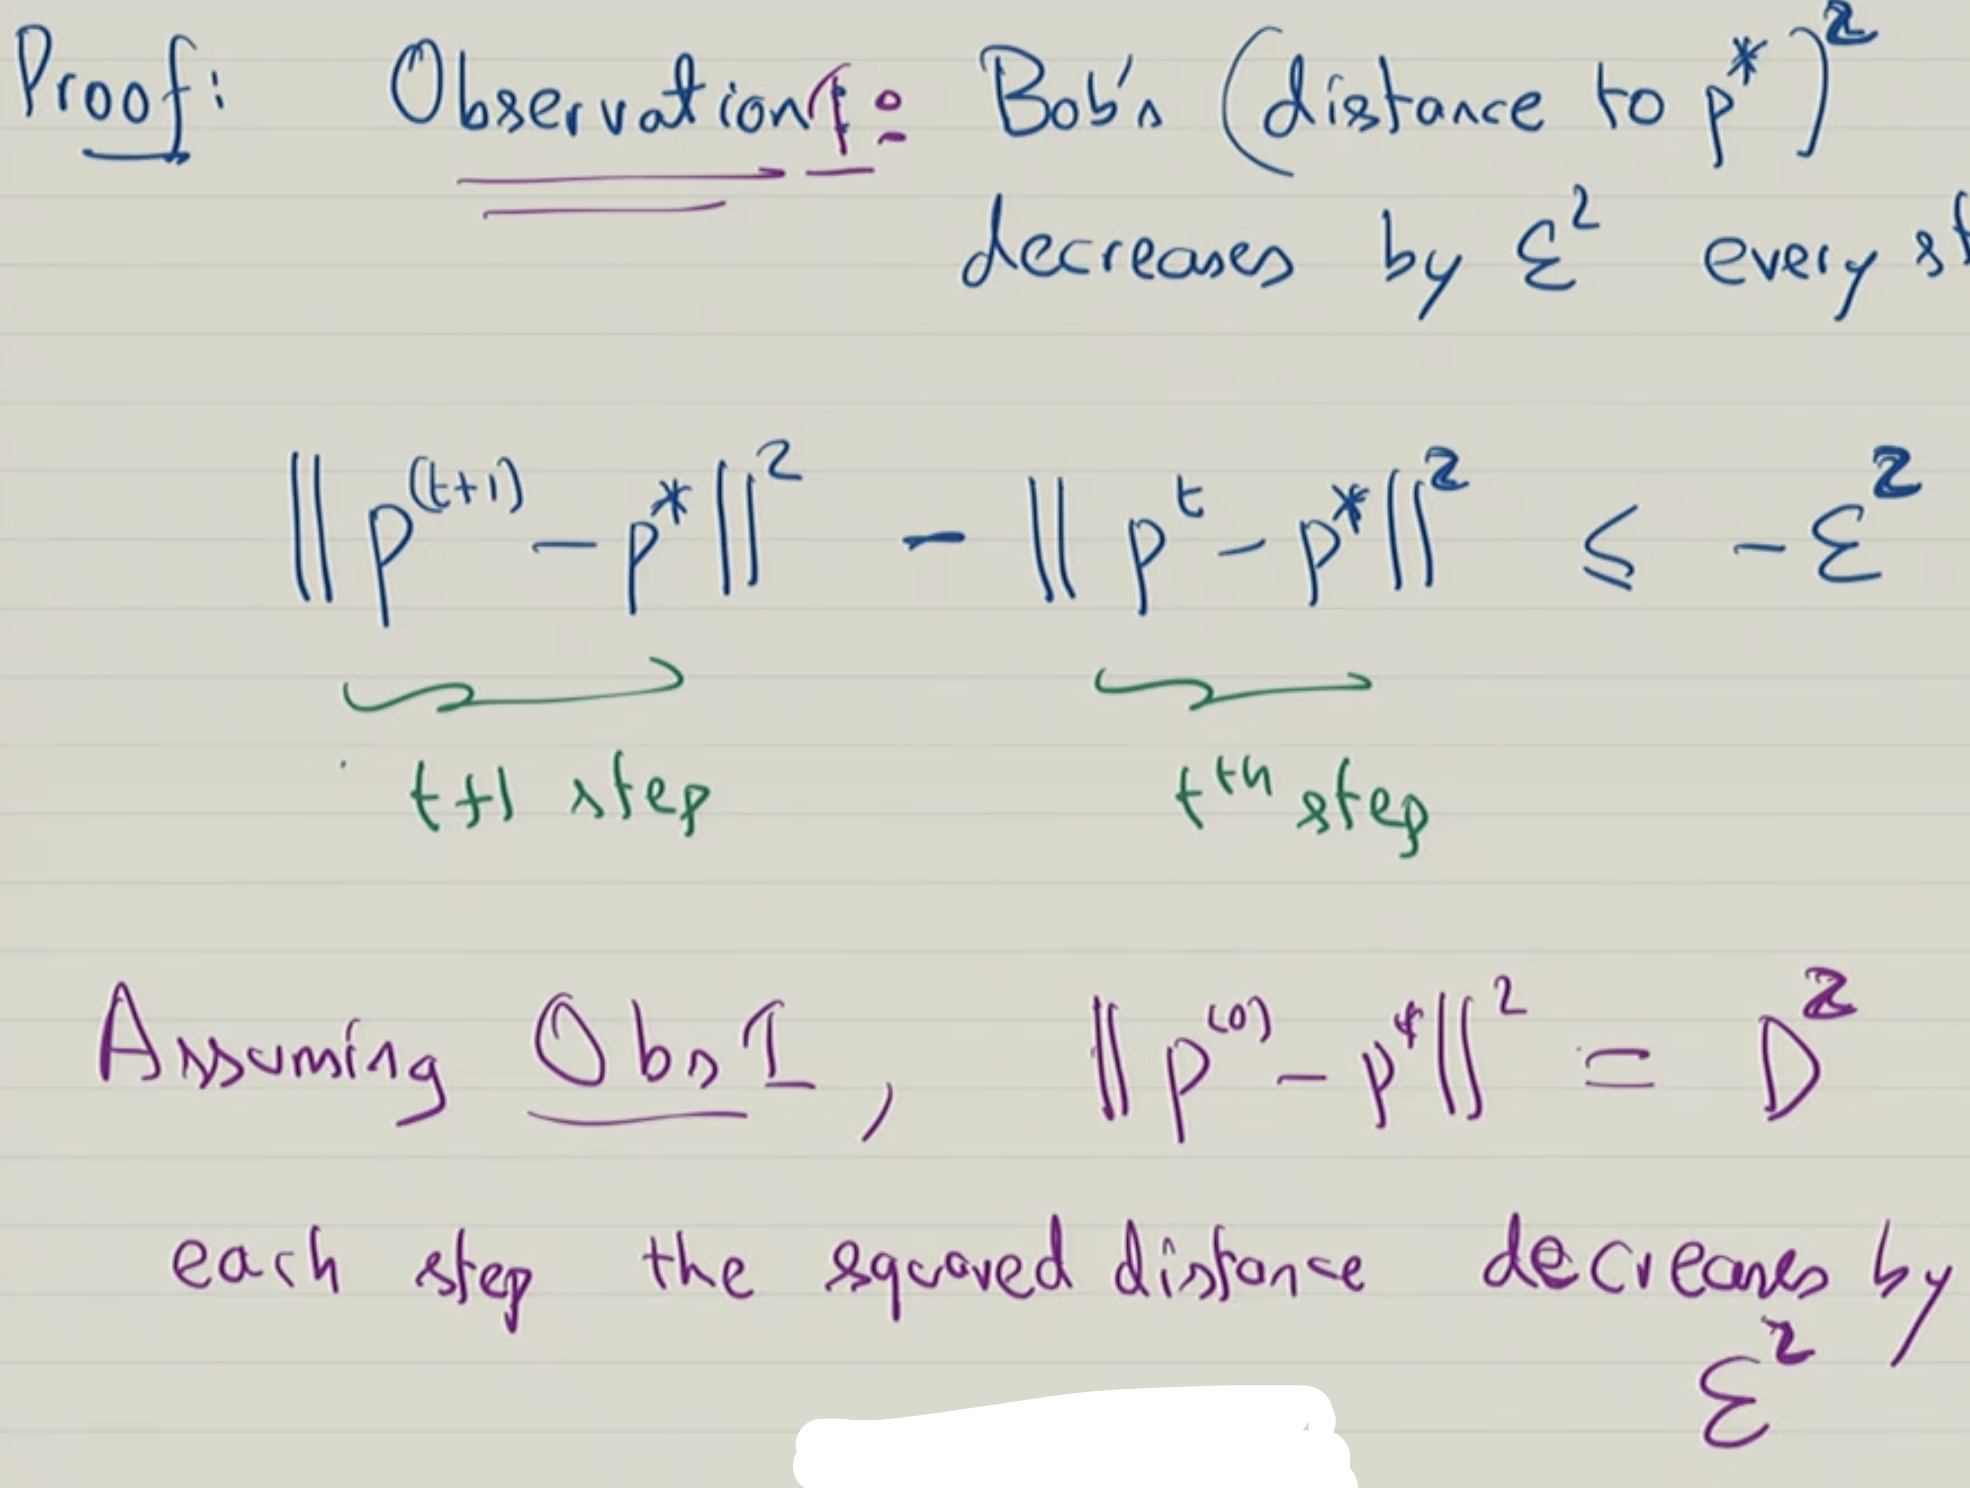 Proof: Observation I: Bob's (distance to p*)²
decreases by ε² every
‖p^(t+1) - p*‖² - ‖p^t - p*‖² ≤ -ε²
t+1 step t^th step
Assuming Obs I, ‖p^(0) - p*‖² = D²
each step the squared distance decreases by
ε²